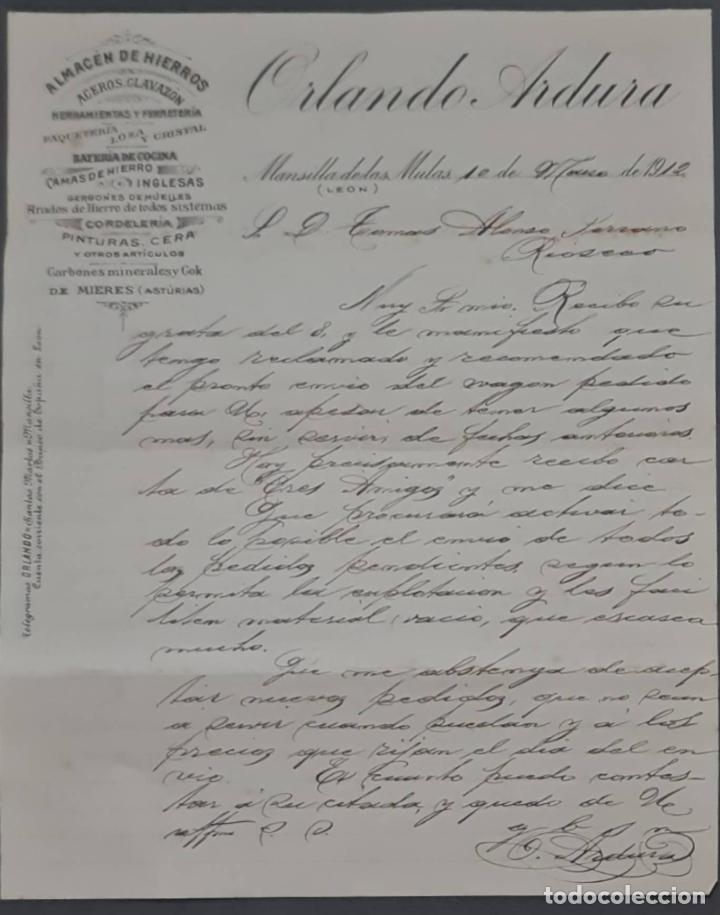 ALMACÉN DE HIERROS
ACEROS, CLAVAZÓN
HERRAMIENTAS Y FERRETERÍA
PAQUETERÍA LOZA Y CRISTAL
BATERÍA DE COCINA
CAMAS DE HIERRO INGLESAS
GERGONES DE MUELLES
Arados de Hierro de todos sistemas
CORDELERÍA
PINTURAS, CERA
Y OTROS ARTÍCULOS
Carbones minerales y Cok
DE MIERES (ASTÚRIAS)
Telegramas ORLANDO=Santas Martas=Mansilla
Cuenta corriente con el Banco de España en Leon
Orlando Ardura
Mansilla de las Mulas 10 de Marzo de 1912
(LEÓN)
S. D. Tomas Alonso
Rioseco
Muy Sr mio. Recibo su
grata del 8, y le manifiesto que
tengo reclamado y recomendado
el pronto envio del wagon pedido
para V. apesar de tener algunos
mas, sin servir, de fechas anteriores.
Hoy precisamente recibo car
ta de "Tres Amigos" y me dice
Que procurará activar to-
do lo posible el envio de todos
los pedidos pendientes, segun lo
permita la explotacion y les faci
liten material vacio, que escasea
mucho.
Que me abstenga de acep-
tar nuevos pedidos, que no sean
a servir cuando puedan y á los
precios que rijan el dia del en
vio. Es cuanto puedo contes-
tar á su citada, y quedo de V.
affmo S. S.
q b s m
O. Ardura
todocoleccion.net